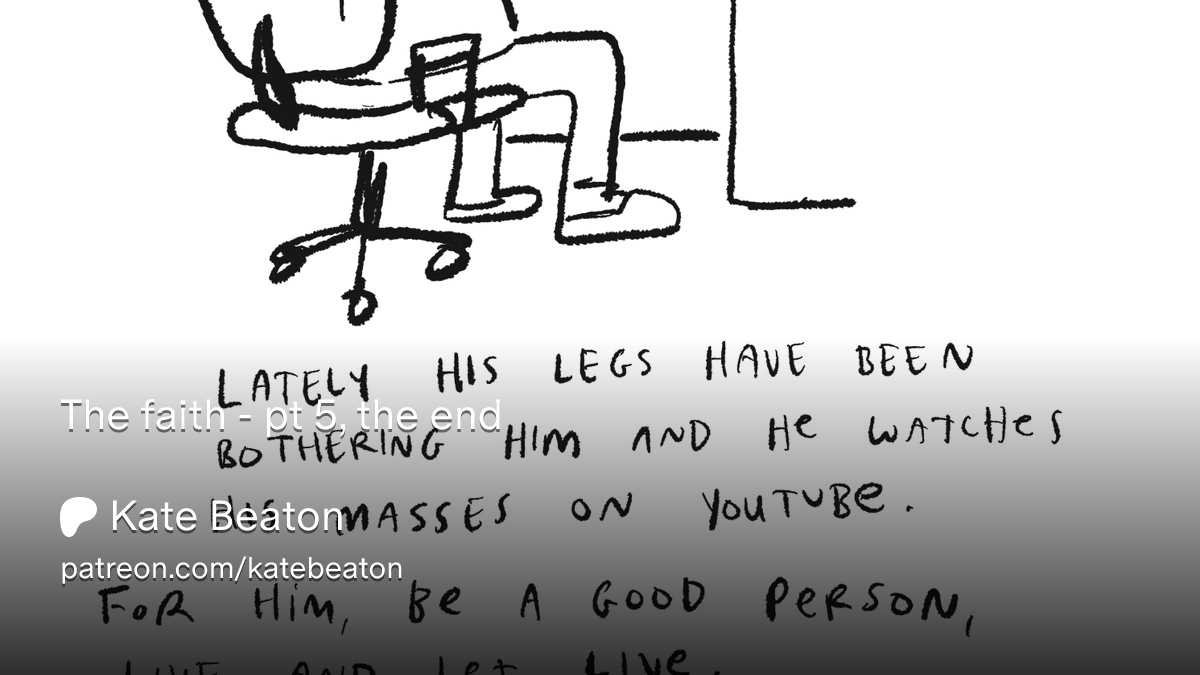 LATELY HIS LEGS HAVE BEEN
The faith - pt 5, the end
BOTHERING HIM AND He WATCHeS
HIS MASSES ON YouTuBe.
Kate Beaton
patreon.com/katebeaton
FoR Him, Be A GOOD PeRSON,
LIVE AND Let LIVe.